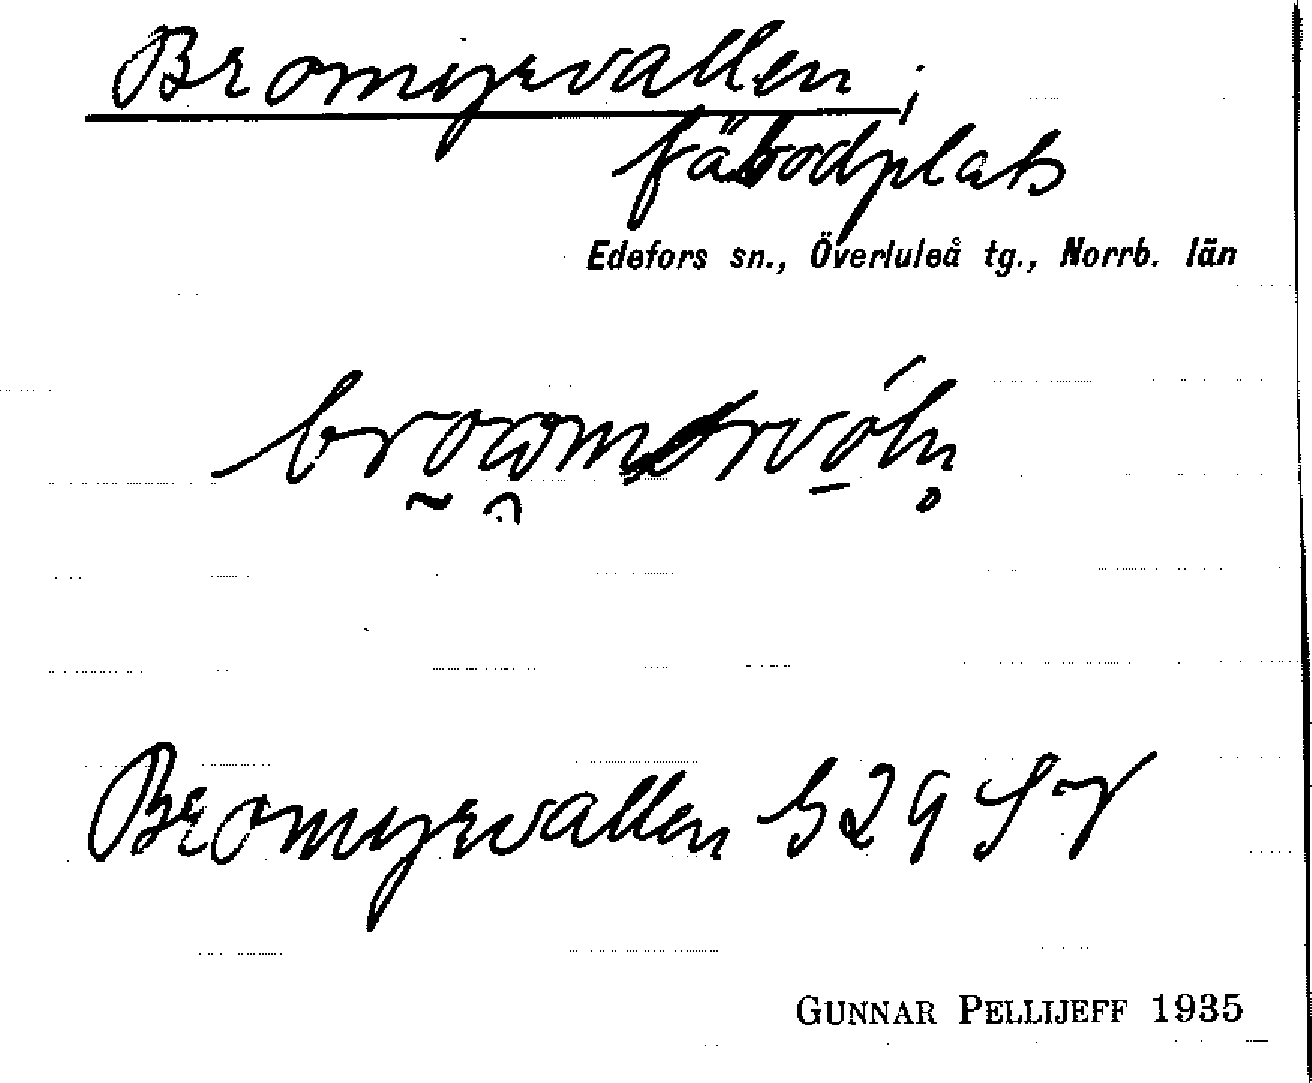 Bromyrvallen;
fäbodplats
Edefors sn., Överluleå tg., Norrb. län
Bromyrvallen
GUNNAR PELLIJEFF 1935